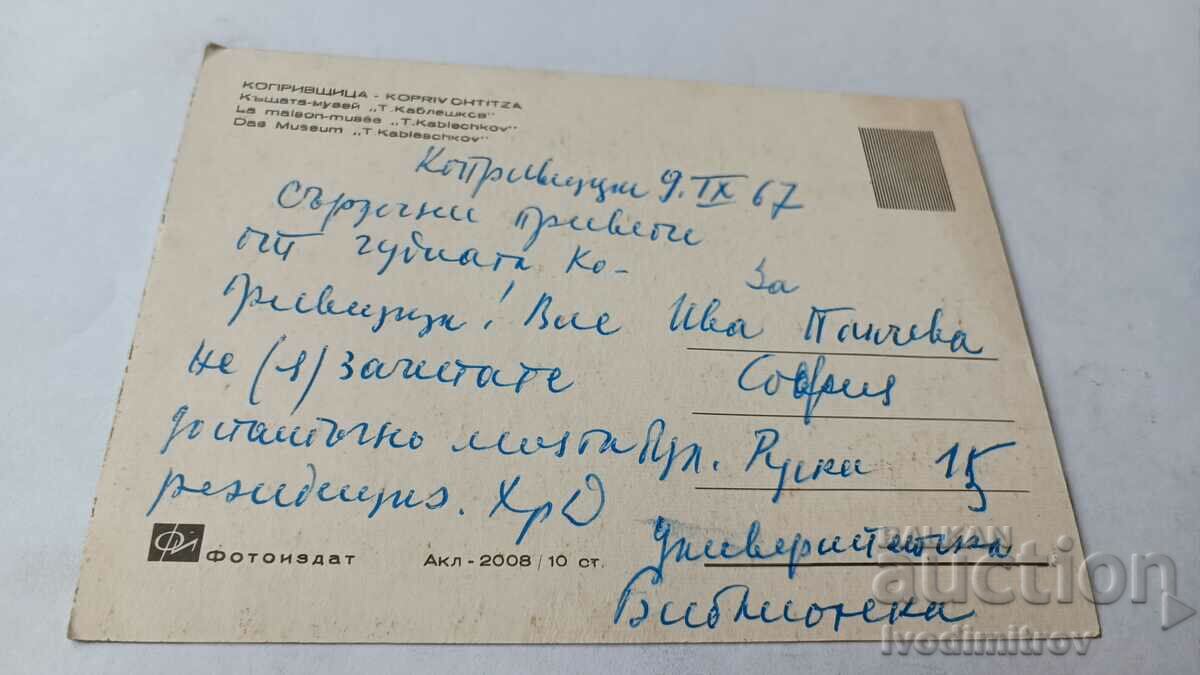 КОПРИВЩИЦА - KOPRIVCHTITZA
Къщата-музей „Т. Каблешков"
La maison-musée „T. Kablechkov"
Das Museum „T. Kableschkov"
Копривщица 9. IX 67
Сърдечни привети
от чудната Ко-
привщица! Вие
не (я) зачитате
достатъчно моята
резиденция. Хр
За
Ива Панчева
София
бул. Руски 15
Университетска
Библиотека
ФОТОИЗДАТ
Акл - 2008 / 10 ст.
BALKAN
auction
ivodimitrov